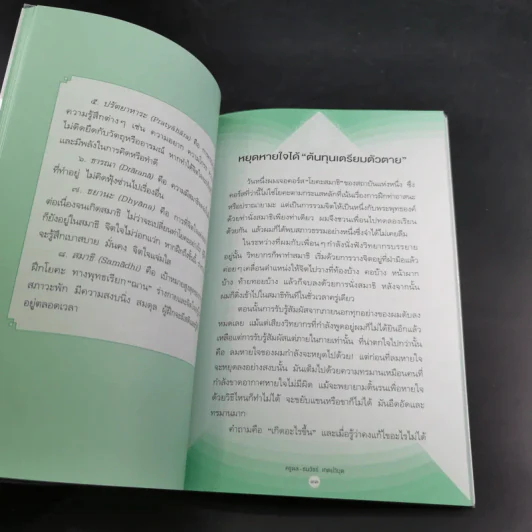 ๕. ปรัตยาหาระ (Pratyahara) คือ
ความรู้สึกต่างๆ เช่น ความอยาก
ไม่ติดยึดกับวัตถุหรืออารมณ์ หากทำได้
และมีพลังในการคิดหรือทำดี
๖. ธารณา (Dharana) คือ
ที่ทำอยู่ ไม่คิดฟุ้งซ่านไปเรื่องอื่น
๗. ธยานะ (Dhyana) คือ
ต่อเนื่องจนเกิดสมาธิ ไม่ว่าจะเปลี่ยน
ก็ยังอยู่ในสมาธิ จิตใจไม่วอกแวก
จะรู้สึกเบาสบาย มั่นคง จิตใจแจ่มใส
๘. สมาธิ (Samadhi) คือ เป้าหมายสูงสุด
ฝึกโยคะ ทางพุทธเรียก“ฌาน” ร่างกาย
สภาวะพัก มีความสงบนิ่ง สมดุล
อยู่ตลอดเวลา
หยุดหายใจได้ “ต้นทุนเตรียมตัวตาย”
วันหนึ่งผมเจอคอร์ส“โยคะสมาธิ”ของสถาบันแห่งหนึ่ง ซึ่ง
คอร์สที่ว่านี้ไม่ใช่โยคะตามกระแสหลักที่เน้นเรื่องการฝึกท่าอาสนะ
หรือปราณายามะ แต่เป็นการรวมจิตให้เป็นหนึ่งกับพระพุทธองค์
ด้วยท่านั่งสมาธิเพียงท่าเดียว ผมจึงชวนเพื่อนไปทดลองเรียน
ด้วยกัน แล้วผมก็ได้พบสภาวธรรมอย่างหนึ่งซึ่งจำได้ไม่เคยลืม
ในระหว่างที่ผมกับเพื่อนๆ กำลังนั่งฟังวิทยากรบรรยาย
อยู่นั้น วิทยากรก็พาทำสมาธิ เริ่มด้วยการวางจิตอยู่ที่ฝ่ามือแล้ว
ค่อยๆ เคลื่อนตำแหน่งให้จิตไปวางที่ท้องบ้าง คอบ้าง หน้าผาก
บ้าง ท้ายทอยบ้าง แล้วก็จบลงด้วยการนั่งสมาธิ หลังจากนั้น
ผมก็ดิ่งเข้าไปในสมาธิทันทีในชั่วเวลาครู่เดียว
ตอนนั้นการรับรู้สัมผัสจากภายนอกทุกอย่างของผมดับลง
หมดเลย แม้แต่เสียงวิทยากรที่กำลังพูดอยู่ผมก็ไม่ได้ยินอีกแล้ว
เหลือแต่การรับรู้สัมผัสแต่ภายในกายเท่านั้น ที่น่าตกใจไปกว่านั้น
คือ ลมหายใจของผมกำลังจะหยุดไปด้วย! แต่ก่อนที่ลมหายใจ
จะหยุดลงอย่างสงบนั้น มันเต็มไปด้วยความทรมานเหมือนคนที่
กำลังขาดอากาศหายใจไม่มีผิด แม้จะพยายามดิ้นรนเพื่อหายใจ
ด้วยวิธีไหนก็ทำไม่ได้ จะขยับแขนหรือขาก็ไม่ได้ มันอึดอัดและ
ทรมานมาก
คำถามคือ “เกิดอะไรขึ้น” และเมื่อรู้ว่าคงแก้ไขอะไรไม่ได้